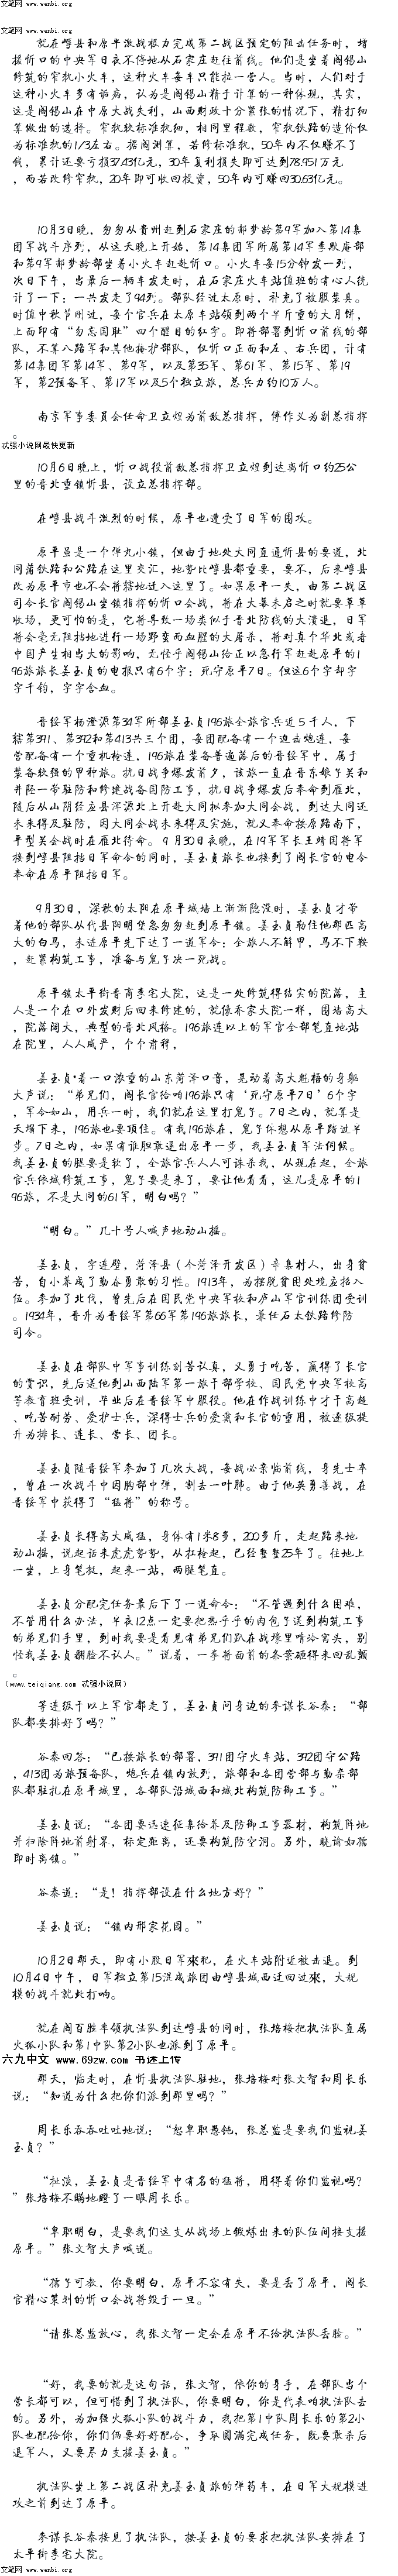 文笔网 www.wenbi.org
文笔网 www.wenbi.org
就在崞县和原平激战极力完成第二战区预定的阻击任务时，增
援忻口的中央军日夜不停地从石家庄赶往前线。他们是坐着阎锡山
修筑的窄轨小火车，这种火车每车只能拉一营人。当时，人们对于
这种小火车多有诟病，认为是阎锡山精于计算的一种体现，其实，
这是阎锡山在中原大战失利，山西财政十分紧张的情况下，精打细
算做出的选择。窄轨较标准轨细，相同里程数，窄轨铁路的造价仅
为标准轨的1/3左右。据阎测算，若修标准轨，50年内不仅赚不了
钱，累计还要亏损37.43亿元，30年复利损失即可达到78.951万元
，而若改修窄轨，20年即可收回投资，50年内可赚回30.63亿元。
10月3日晚，匆匆从贵州赶到石家庄的郝梦龄第9军加入第14集
团军战斗序列，从这天晚上开始，第14集团军所属第14军李默庵部
和第9军郝梦龄部坐着小火车赶赴忻口。小火车每15分钟发一列，
次日下午，当最后一辆车发走时，在石家庄火车站值班的有心人统
计了一下：一共发走了94列。部队经过太原时，补充了被服装具。
时值中秋节刚过，每个官兵在太原车站领到两个半斤重的大月饼，
上面印有“勿忘国耻”四个醒目的红字。即将部署到忻口前线的部
队，不算八路军和其他掩护部队，仅忻口正面和左、右兵团，计有
第14集团军第14军、第9军，以及第35军、第61军、第15军、第19
军，第2预备军、第17军以及5个独立旅，总兵力约10万人。
南京军事委员会任命卫立煌为前敌总指挥，傅作义为副总指挥
。
忒强小说网最快更新
10月6日晚上，忻口战役前敌总指挥卫立煌到达离忻口约25公
里的晋北重镇忻县，设立总指挥部。
在崞县战斗激烈的时候，原平也遭受了日军的围攻。
原平虽是一个弹丸小镇，但由于地处大同直通忻县的要道，北
同蒲铁路和公路在这里交汇，地势比崞县都重要，要不，后来崞县
改为原平市也不会将辖地迁入这里了。如果原平一失，由第二战区
司令长官阎锡山坐镇指挥的忻口会战，将在大幕未启之时就要草草
收场，更可怕的是，它将导致一场类似于晋北防线的大溃退，日军
将会毫无阻挡地进行一场野蛮而血腥的大屠杀，将对真个华北或者
中国产生相当大的影响，无怪乎阎锡山给正以急行军赶赴原平的1
96旅旅长姜玉贞的电报只有6个字：死守原平7日。但这6个字却字
字千钧，字字含血。
晋绥军杨澄源第34军所部姜玉贞196旅全旅官兵近５千人，下
辖第391、第392和第413共三个团，每团配备有一个迫击炮连，每
营配备有一个重机枪连，196旅在装备普遍落后的晋绥军中，属于
装备较强的甲种旅。抗日战争爆发前夕，该旅一直在晋东娘子关和
井陉一带驻防和修建战备国防工事，抗日战争爆发后奉命到雁北，
随后从山阴经应县浑源北上开赴大同拟参加大同会战，到达大同还
未来得及驻防，因大同会战未来得及实施，就又奉命按原路南下，
平型关会战时在雁北待命。９月30日夜晚，在19军军长王靖国将军
接到崞县阻挡日军命令的同时，姜玉贞旅长也接到了阎长官的电令
奉命在原平阻挡日军。
9月30日，深秋的太阳在原平城墙上渐渐隐没时，姜玉贞才带
着他的部队从代县阳明堡忽匆匆赶到原平镇。姜玉贞勒住他那匹高
大的白马，未进原平先下达了一道军令：全旅人不解甲，马不下鞍
，赶紧构筑工事，准备与鬼子决一死战。
原平镇太平街晋商李宅大院，这是一处修筑得结实的院落，主
人是一个在口外发财后回来修建的，就像乔家大院一样，围墙高大
，院落阔大，典型的晋北风格。196旅连以上的军官全部笔直地站
在院里，人人威严，个个肃穆，
姜玉贞*着一口浓重的山东菏泽口音，晃动着高大魁梧的身躯
大声说：“弟兄们，阎长官给咱196旅只有‘死守原平7日’6个字
，军令如山，用兵一时，我们就在这里打鬼子。7日之内，就算是
天塌下来，196旅也要顶住。有我196旅在，鬼子休想从原平踏过半
步。7日之内，如果有谁胆敢退出原平一步，我姜玉贞军法伺候。
我姜玉贞的腿要是软了，全旅官兵人人可诛杀我，从现在起，全旅
官兵依城修筑工事，鬼子要是来了，要让他看看，这儿是原平的1
96旅，不是大同的61军，明白吗？”
“明白。”几十号人喊声地动山摇。
姜玉贞，字连璧，菏泽县（今菏泽开发区）辛集村人，出身贫
苦，自小养成了勤奋勇敢的习性。1913年，为摆脱贫困处境应招入
伍。参加了北伐，曾先后在国民党中央军校和庐山军官训练团受训
。1934年，晋升为晋绥军第66军第196旅旅长，兼任石太铁路修防
司令。
姜玉贞在部队中军事训练刻苦认真，又勇于吃苦，赢得了长官
的赏识，先后送他到山西陆军第一旅干部学校、国民党中央军校高
等教育班受训，毕业后在晋绥军中服役。他在作战训练中才干高超
、吃苦耐劳、爱护士兵，深得士兵的爱戴和长官的重用，被逐级提
升为排长、连长、营长、团长。
姜玉贞随晋绥军参加了几次大战，每战必亲临前线，身先士卒
，曾在一次战斗中因胸部中弹，割去一叶肺。由于他英勇善战，在
晋绥军中获得了“猛将”的称号。
姜玉贞长得高大威猛，身体有1米8多，200多斤，走起路来地
动山摇，说起话来虎虎势势，从扛枪起，已经整整25年了。往地上
一坐，上身笔挺，起来一站，两腿笔直。
姜玉贞分配完任务最后下了一道命令：“不管遇到什么困难，
不管用什么办法，半夜12点一定要把热乎乎的肉包子送到构筑工事
的弟兄们手里，到时我要是看见有弟兄们趴在战壕里啃冷窝头，别
怪我姜玉贞翻脸不认人。”说着，一拳将面前的条案砸得来回乱颤
。
（www.teiqiang.com 忒强小说网）
等连级干以上军官都走了，姜玉贞问身边的参谋长谷泰：“部
队都安排好了吗？”
谷泰回答：“已按旅长的部署，391团守火车站，392团守公路
，413团为旅预备队，炮兵在镇内放列，旅部和各团营部与勤杂部
队都驻扎在原平城里，各部队沿城西和城北构筑防御工事。”
姜玉贞说：“各团要迅速征集给养及防御工事器材，构筑阵地
并扫除阵地前射界，标定距离，还要构筑防空洞。另外，晓谕妇孺
即时离镇。”
谷泰道：“是！指挥部设在什么地方好？”
姜玉贞说：“镇内邢家花园。”
10月2日那天，即有小股日军來犯，在火车站附近被击退。到
10月4日中午，日军独立第15混成旅团由崞县城西迂回过來，大规
模的战斗就此打响。
就在阎百胜率领执法队到达崞县的同时，张培梅把执法队直属
火狐小队和第1中队第2小队也派到了原平。
六九中文 www.69zw.com 书迷上传
那天，临走时，在忻县执法队驻地，张培梅对张文智和周长乐
说：“知道为什么把你们派到那里吗？”
周长乐吞吞吐吐地说：“恕卑职愚钝，张总监是要我们监视姜
玉贞？”
“扯淡，姜玉贞是晋绥军中有名的猛将，用得着你们监视吗？
”张培梅不瞒地瞪了一眼周长乐。
“卑职明白，是要我们这支从战场上锻炼出来的队伍间接支援
原平。”张文智大声喊道。
“孺子可教，你要明白，原平不容有失，要是丢了原平，阎长
官精心策划的忻口会战将毁于一旦。”
“请张总监放心，我张文智一定会在原平不给执法队丢脸。”
“好，我要的就是这句话，张文智，依你的身手，在部队当个
营长都可以，但可惜到了执法队，你要明白，你是代表咱执法队去
的。另外，为加强火狐小队的战斗力，我把第1中队周长乐的第2小
队也配给你，你们俩要好好配合，争取圆满完成任务，既要敢杀后
退军人，又要尽力支援姜玉贞。”
执法队坐上第二战区补充姜玉贞旅的弹药车，在日军大规模进
攻之前到达了原平。
参谋长谷泰接见了执法队，按姜玉贞的要求把执法队安排在了
太平街李宅大院。
文笔网 www.wenbi.org